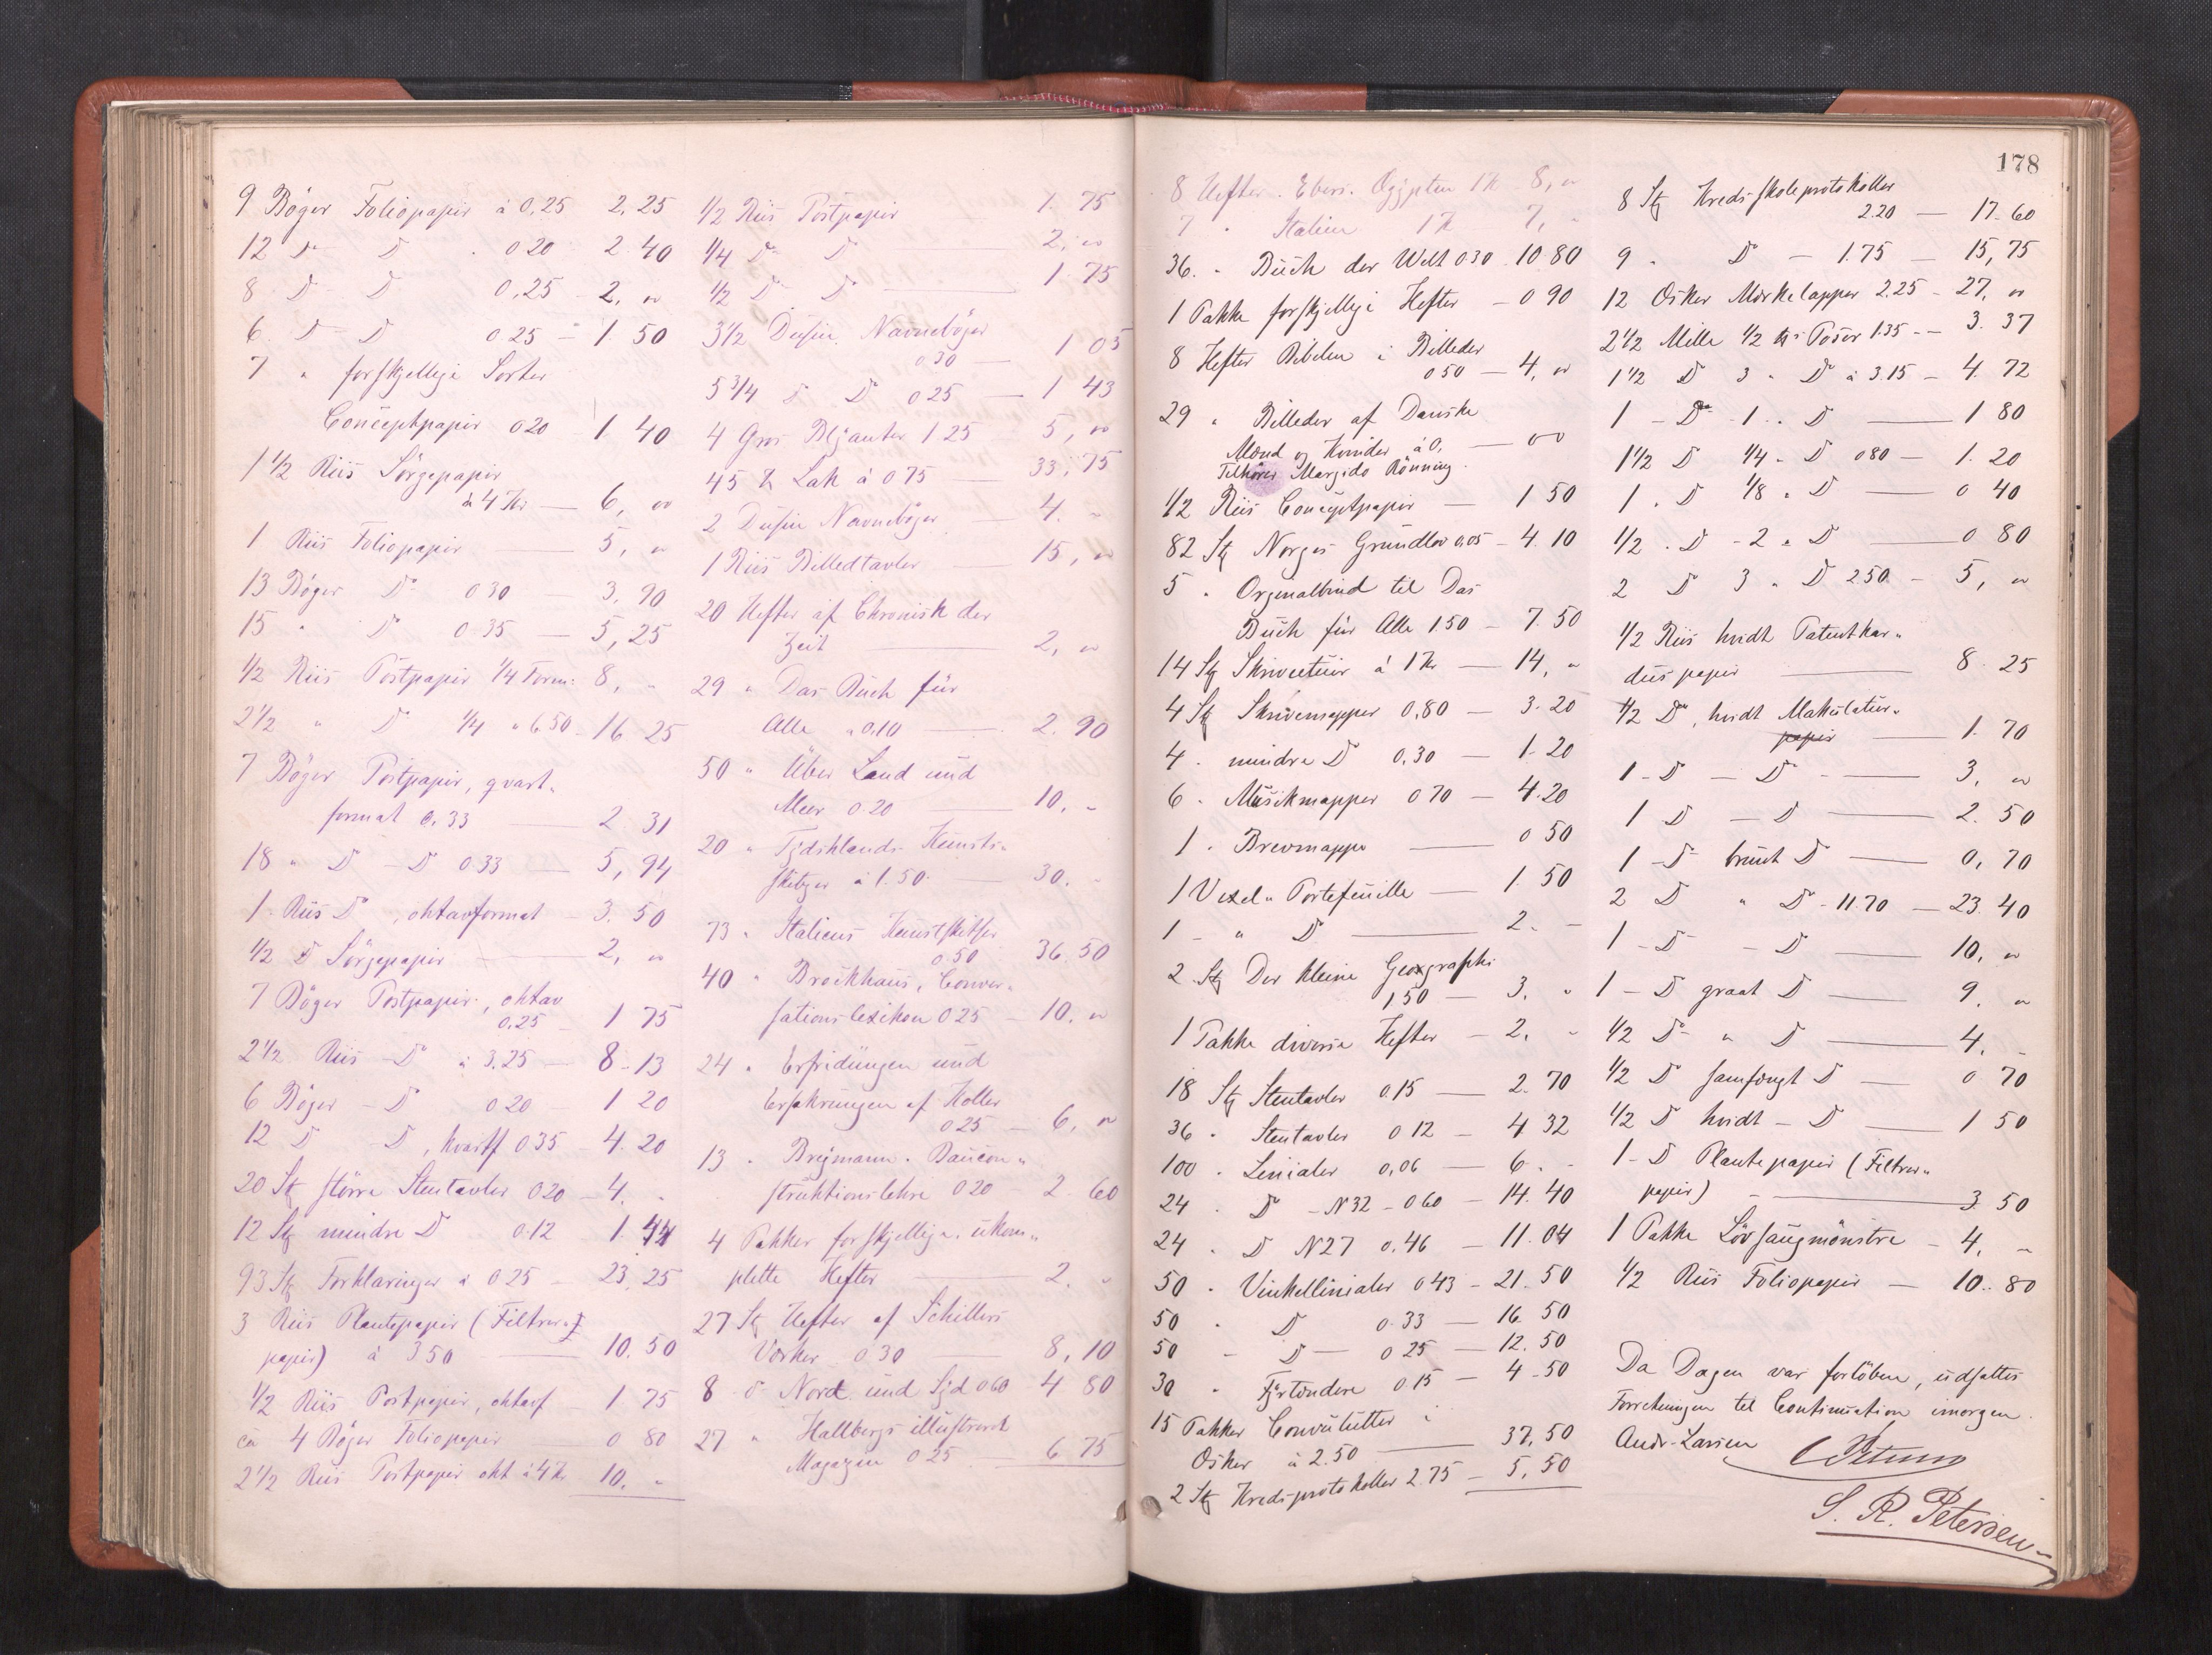 9 Bøger Foliopapir à 0,25 2,25
12 Do D 0 20 2 40
8 D D 0,25 2, "
6 D D 0 25 - 1. 50
7 " forskjellige Sorter
Conceptpapir 0 20 1. 40
1 1/2 Riis Sørgepapir
à 4 Kr — 6, "
1 Riis Foliopapir — 5, "
13 Bøger Do 0 30 3. 90
15 " D 0 35 — 5, 25
1/2 Riis Postpapir 1/4 Form: 8, "
2 1/2 " D 1/4 " 6 50 - 16 25
7 Bøger Postpapir, qvart-
format 0. 33 — 2 31
18 " D - D 0 33 — 5, 94
1. Riis Do, oktavformat - 3. 50
1/2 D Sørgepapir — 2, "
7 Bøger Postpapir, oktav
0,25 1 75
2 1/2 Riis - Do à 3.25 — 8-13
6 Bøger - D 0 20 1 20
12 D D, kvartf 0 35 - 4. 20
20 Stk større Stentavler 0 20 - 4. "
12 Stk mindre D 0.12 1. 44
93 Stk Forklaringer à 0 25 - 23. 25
3 Riis Plantepapir (Filtrer-
papir) à 3 50 — 10. 50
1/2 Riis Postpapir, oktavf - 1 75
ca 4 Bøger Foliopapir 0 80
2 1/2 Riis Postpapir okt à 4 Kr 10. "
1/2 Riis Postpapir 1. 75
1/4 Do D 2, "
1/2 D D — 1. 75
3 1/2 Dusin Navnebøger
0 30 — 1 05
5 3/4 D D 0 25 — 1 43
4 Gros Blyanter 1 25 5, "
45 ℔ Lak à 0 75 — 33,75
2 Dusin Navnebøger — 4. "
1 Riis Billedtavler — 15, "
20 Hefter af Chronik der
Zeit — 2, "
29 " Das Buch für
Alle " 0,10 — 2. 90
50 " Über Land und
Meer 0 20 — 10. "
20 " Tydsklands Kunst-
skitzer à 1.50 — 30. "
73 " Italiens Kunstskitser
0 50 36.50
40 " Brockhaus, Conver-
sationslexikon 0 25 - 10. "
24 " Erfindungen und
Erfahrungen af Koller
0 25 - 6, "
13 " Breymann. Baucon-
struktionslehre 0 20 - 2. 60
4 Pakker forskjellige, ukom-
plette Hefter — 2. "
27 Stk Hefter af Schillers
Værker 0 30 — 8,10
8 D Nord und Syd 0 60 - 4 80
27 " Hallbergs illustreret
Magazin 0 25 — 6 75
178
8 Hefter. Ebers. Ægypten 1 Kr 8, "
7 " Italien 1 Kr 7, "
36. " Buch der Welt 0 30 10.80
1 Pakke forskjellige Hefter - 0 90
8 Hefter Bibelen i Billeder
0 50 — 4, "
29 " Billeder af Danske
Mænd og Kvinder à 0, — 00
Tilhører Margido Rønning.
1/2 Riis Conceptpapir — 1 50
82 Stk Norges Grundlov 0,05 - 4.10
5 " Orginalbind til Das
Buch für Alle 1.50 - 7. 50
14 Stk Skriveetuier à 1 Kr — 14, "
4 Stk Skrivemapper 0,80 — 3. 20
4 " mindre D 0,30 — 1. 20
6 " Musikmapper 0 70 — 4.20
1 " Brevmappe — 0 50
1 Vexel- Portefeuille — 1. 50
1 - " D — 2. -
2 Stk Der kleine Geographi
1 50 — 3. "
1 Pakke diverse Hefter - 2. "
18 Stk Stentavler 0.15 — 2. 70
36 " Stentavler 0 12 — 4 32
100 " Linialer 0,06 — 6. -
24 " D - N 32 - 0 60 — 14. 40
24 " D N 27 0.46 — 11. 04
50 " Vinkellinialer 0 43 - 21. 50
50 " D 0.33 — 16 50
50 - D — 0 25 — 12. 50
30 " Fyrtøndere 0 15 — 4.50
15 Pakker Convulutter i
Æsker à 2.50 — 37,50
2 Stk Kredsprotokoller 2.75 — 5,50
8 Stk Kredsskoleprotokoller
2.20 — 17-60
9 " D - 1.75 — 15,75
12 Æsker Mærkelapper 2.25 - 27, "
2 1/2 Mille 1/2 ℔s Poser 1.35 -- 3. 37
1 1/2 D 3 " D à 3.15 - 4. 72
1 - Do 1 " D — 1 80
1 1/2 D 1/4 " D 0 80 — 1. 20
1 " D 1/8 " D — 0 40
1/2 " D - 2 " D — 0 80
2 D 3 " D 2 50 - 5, "
1/2 Riis hvidt Patentkar-
duspapir — 8. 25
1/2 Do, hvidt Makulatur-
papir — 1. 70
1 - D — D — 3. "
1 D — D — 2. 50
1 - D brunt D — 0, 70
2 D " D - 11.70 — 23. 40
1 - D - D — 10, "
1 - D graat D — 9. "
1/2 D " D — 4. -
1/2 D samfængt D — 0 70
1/2 D hvidt - D — 1 50
1 - D Plantepapir (Filtrer-
papir) — 3. 50
1 Pakke Løvsaugmønstre - 4, "
1/2 Riis Foliopapir — 10. 80
Da Dagen var forløben, udsattes
Forretningen til Continuation imorgen.
Andr. Larsen
S. R. Petersen